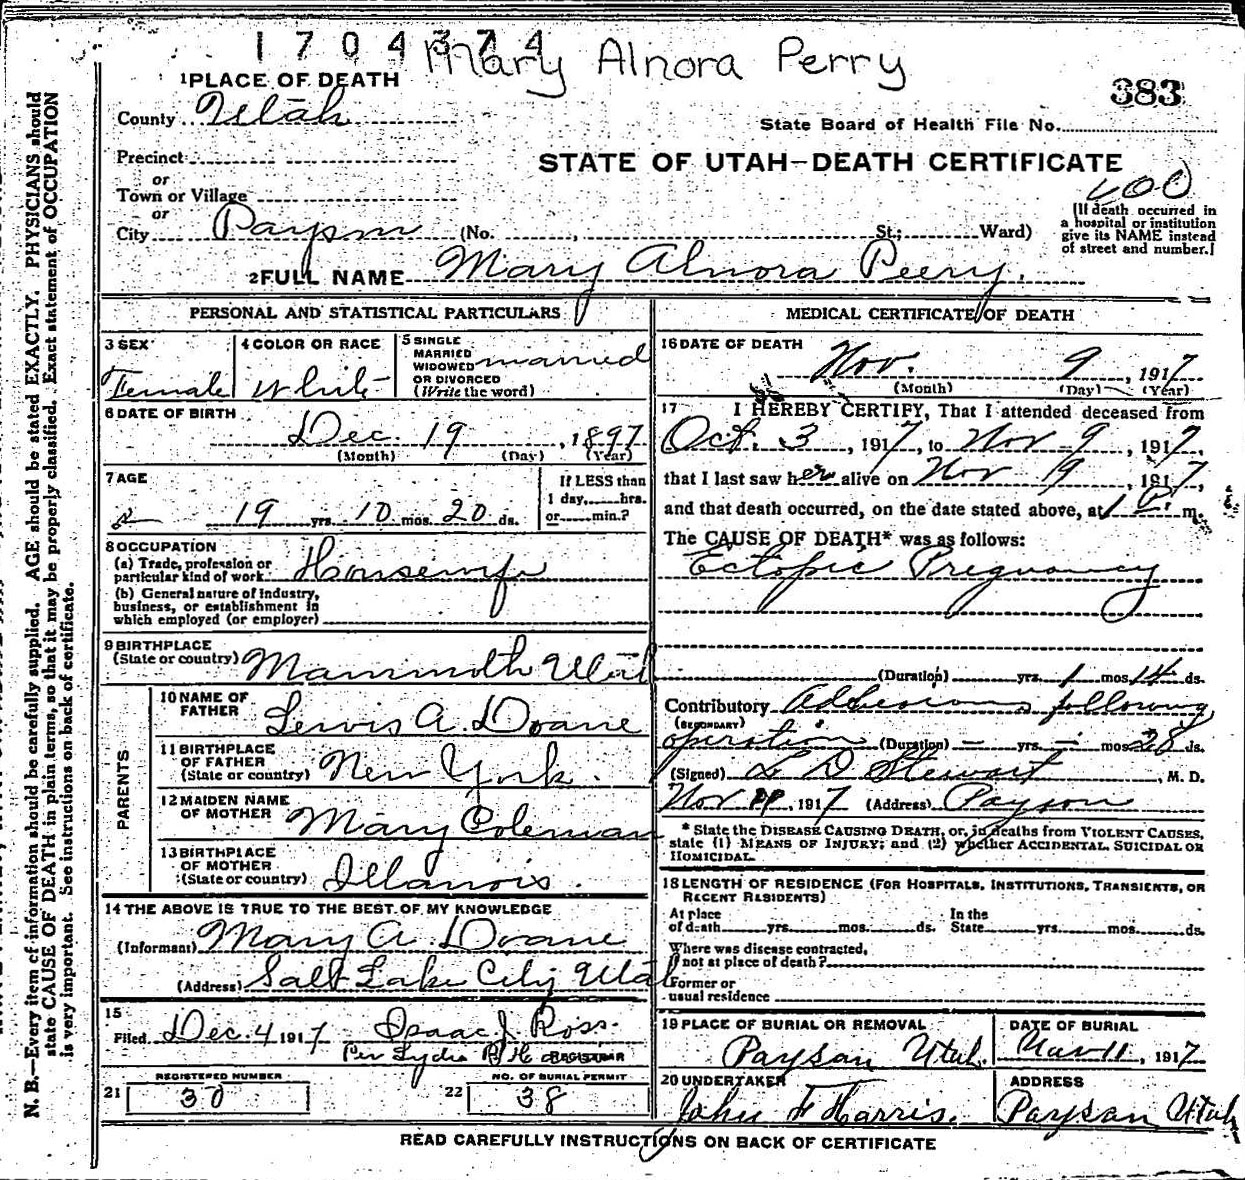 1704374
Mary Alnora Perry
383
1 PLACE OF DEATH
County Utah
State Board of Health File No.
Precinct
STATE OF UTAH—DEATH CERTIFICATE
or
Town or Village
or
City Payson (No. , St.; Ward)
(If death occurred in
a hospital or institution
give its NAME instead
of street and number.)
2 FULL NAME Mary Alnora Peery.
PERSONAL AND STATISTICAL PARTICULARS
3 SEX Female
4 COLOR OR RACE White
5 SINGLE
MARRIED
WIDOWED
OR DIVORCED
(Write the word)
married
6 DATE OF BIRTH
Dec. 19, 1897
(Month) (Day) (Year)
7 AGE
19 yrs. 10 mos. 20 ds.
If LESS than
1 day, hrs.
or min.?
8 OCCUPATION
(a) Trade, profession or
particular kind of work Housewife
(b) General nature of industry,
business, or establishment in
which employed (or employer)
9 BIRTHPLACE
(State or country) Mammoth Utah
PARENTS
10 NAME OF
FATHER Lewis A. Doane
11 BIRTHPLACE
OF FATHER
(State or country) New York.
12 MAIDEN NAME
OF MOTHER Mary Coleman
13 BIRTHPLACE
OF MOTHER
(State or country) Illanois.
14 THE ABOVE IS TRUE TO THE BEST OF MY KNOWLEDGE
(Informant) Mary A. Doane
(Address) Salt Lake City Utah
15
Filed Dec. 4 1917 Isaac J. Ross.
Per Lydia R H REGISTRAR
REGISTERED NUMBER
21 30
NO. OF BURIAL PERMIT
22 38
MEDICAL CERTIFICATE OF DEATH
16 DATE OF DEATH
Nov. 9, 1917
(Month) (Day) (Year)
17 I HEREBY CERTIFY, That I attended deceased from
Oct. 3, 1917, to Nov 9, 1917,
that I last saw her alive on Nov 9, 1917,
and that death occurred, on the date stated above, at 1 P. m.
The CAUSE OF DEATH* was as follows:
Ectopic Pregnancy
(Duration) yrs. 1 mos. 14 ds.
Contributory Adhesions following
(SECONDARY)
operation (Duration) — yrs. — mos. 28 ds.
(Signed) L D Stewart, M. D.
Nov, 1917 (Address) Payson
* State the DISEASE CAUSING DEATH, or, in deaths from VIOLENT CAUSES,
state (1) MEANS OF INJURY; and (2) whether ACCIDENTAL, SUICIDAL OR
HOMICIDAL.
18 LENGTH OF RESIDENCE (FOR HOSPITALS, INSTITUTIONS, TRANSIENTS, OR
RECENT RESIDENTS)
At place
of death yrs. mos. ds.
In the
State yrs. mos. ds.
Where was disease contracted,
if not at place of death?
Former or
usual residence
19 PLACE OF BURIAL OR REMOVAL
Paysan Utah.
DATE OF BURIAL
Nov 11, 1917
20 UNDERTAKER
John F Harris.
ADDRESS
Paysan Utah
READ CAREFULLY INSTRUCTIONS ON BACK OF CERTIFICATE
N. B.—Every item of information should be carefully supplied. AGE should be stated EXACTLY. PHYSICIANS should
state CAUSE OF DEATH in plain terms, so that it may be properly classified. Exact statement of OCCUPATION
is very important. See instructions on back of certificate.